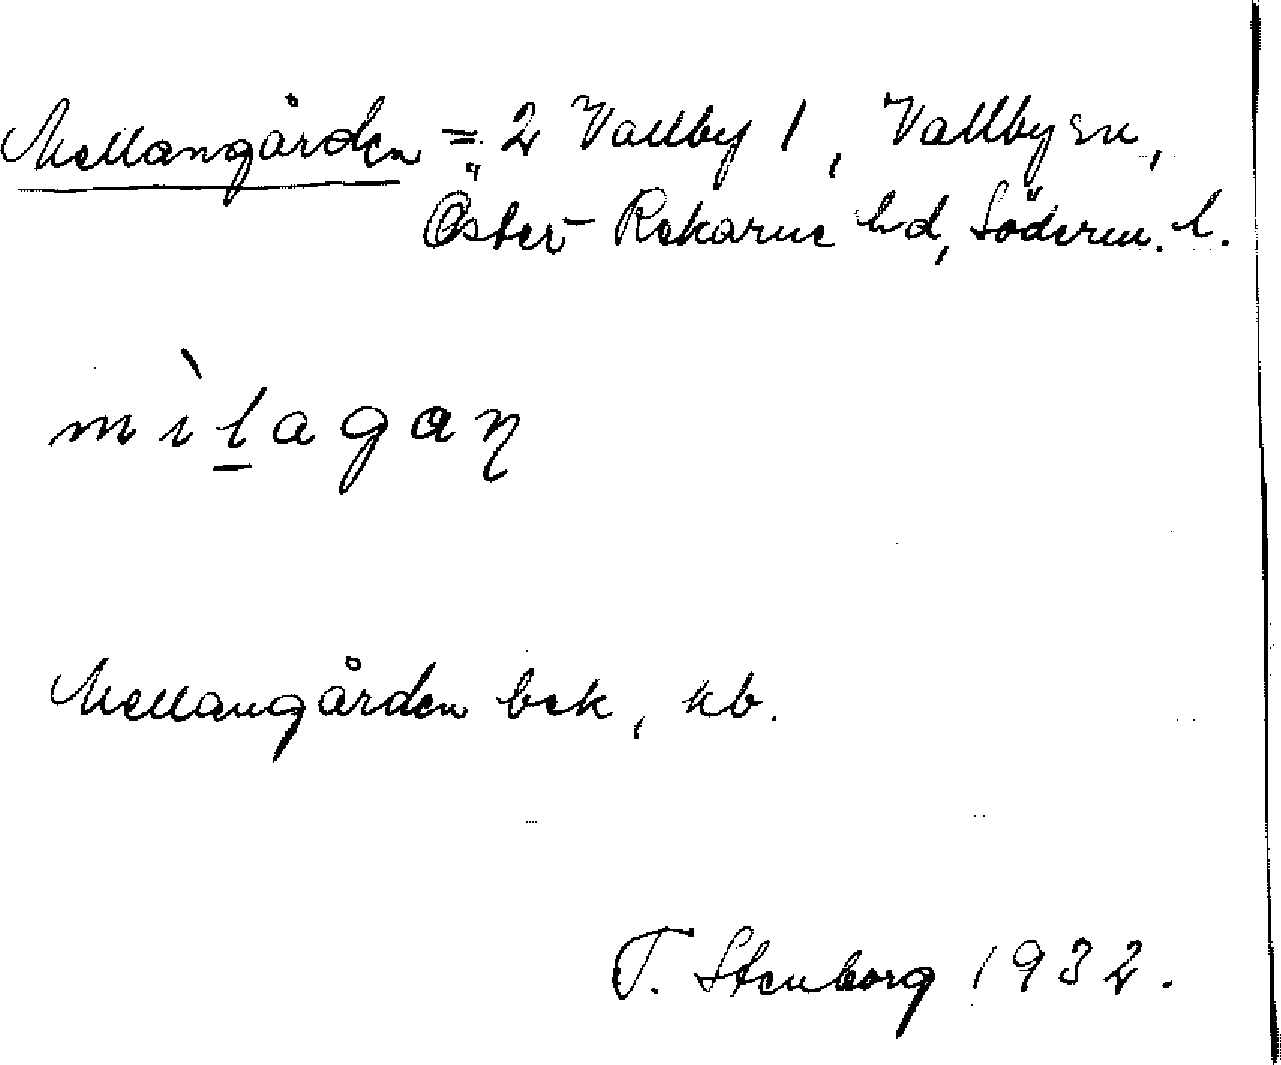 Mellangården = 2 Vallby 1, Vallby sn,
Öster-Rekarne hd, Söderm. l.
mìlagaɳ
Mellangården bek, kb.
T. Stenborg 1932.